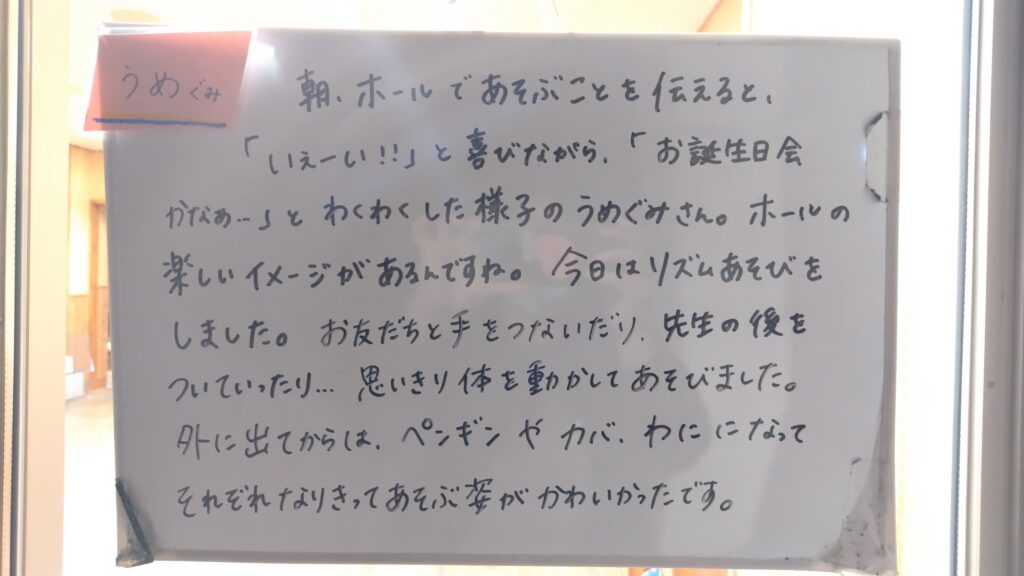 うめぐみ
朝、ホールであそぶことを伝えると、
「いぇーい!!」と喜びながら、「お誕生日会
かなぁ…」とわくわくした様子のうめぐみさん。ホールの
楽しいイメージがあるんですね。今日はリズムあそびを
しました。お友だちと手をつないだり、先生の後を
ついていったり…思いきり体を動かしてあそびました。
外に出てからは、ペンギンやカバ、わにになって
それぞれなりきってあそぶ姿がかわいかったです。